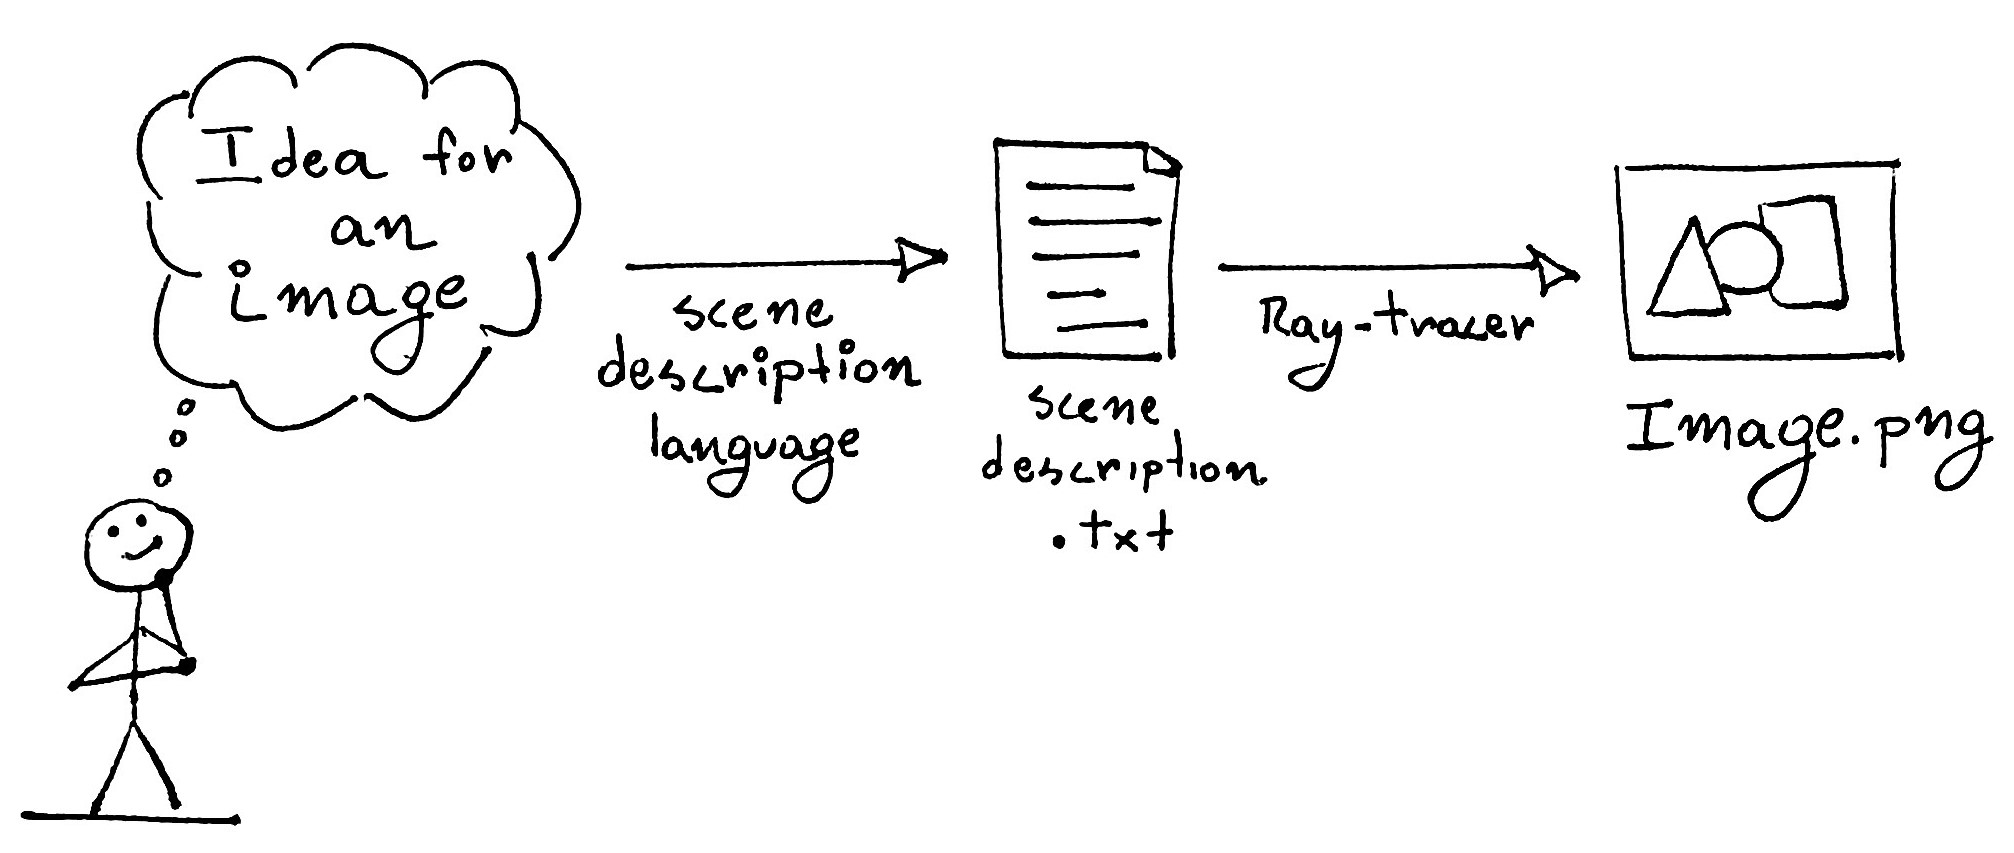 Idea for
an
image
scene
description
language
scene
description
.txt
Ray-tracer
Image.png